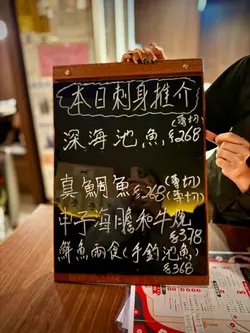 本日刺身推介
(薄切)
深海池魚$268
真鯛魚$268(薄切)
(厚切)
海膽和牛燒
$378
鮮魚兩食(手釣池魚)
$368